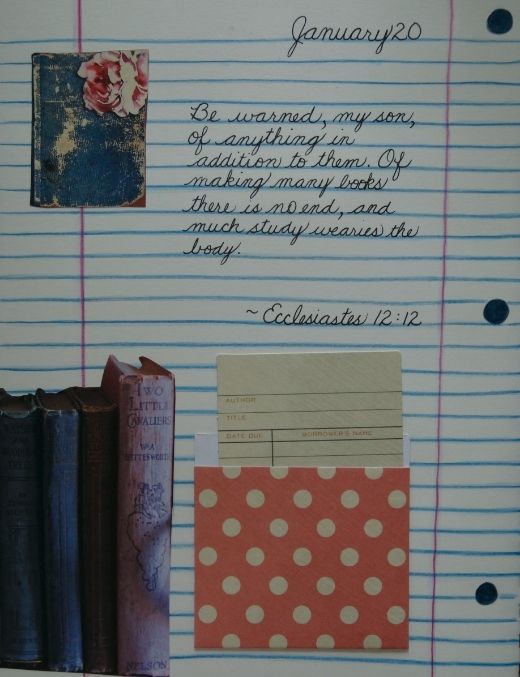 January 20
Be warned, my son,
of anything in
addition to them. Of
making many books
there is no end, and
much study wearies the
body.
~Ecclesiastes 12:12
AUTHOR
TITLE
DATE DUE BORROWER'S NAME
TWO
LITTLE
CAVALIERS
NELSON